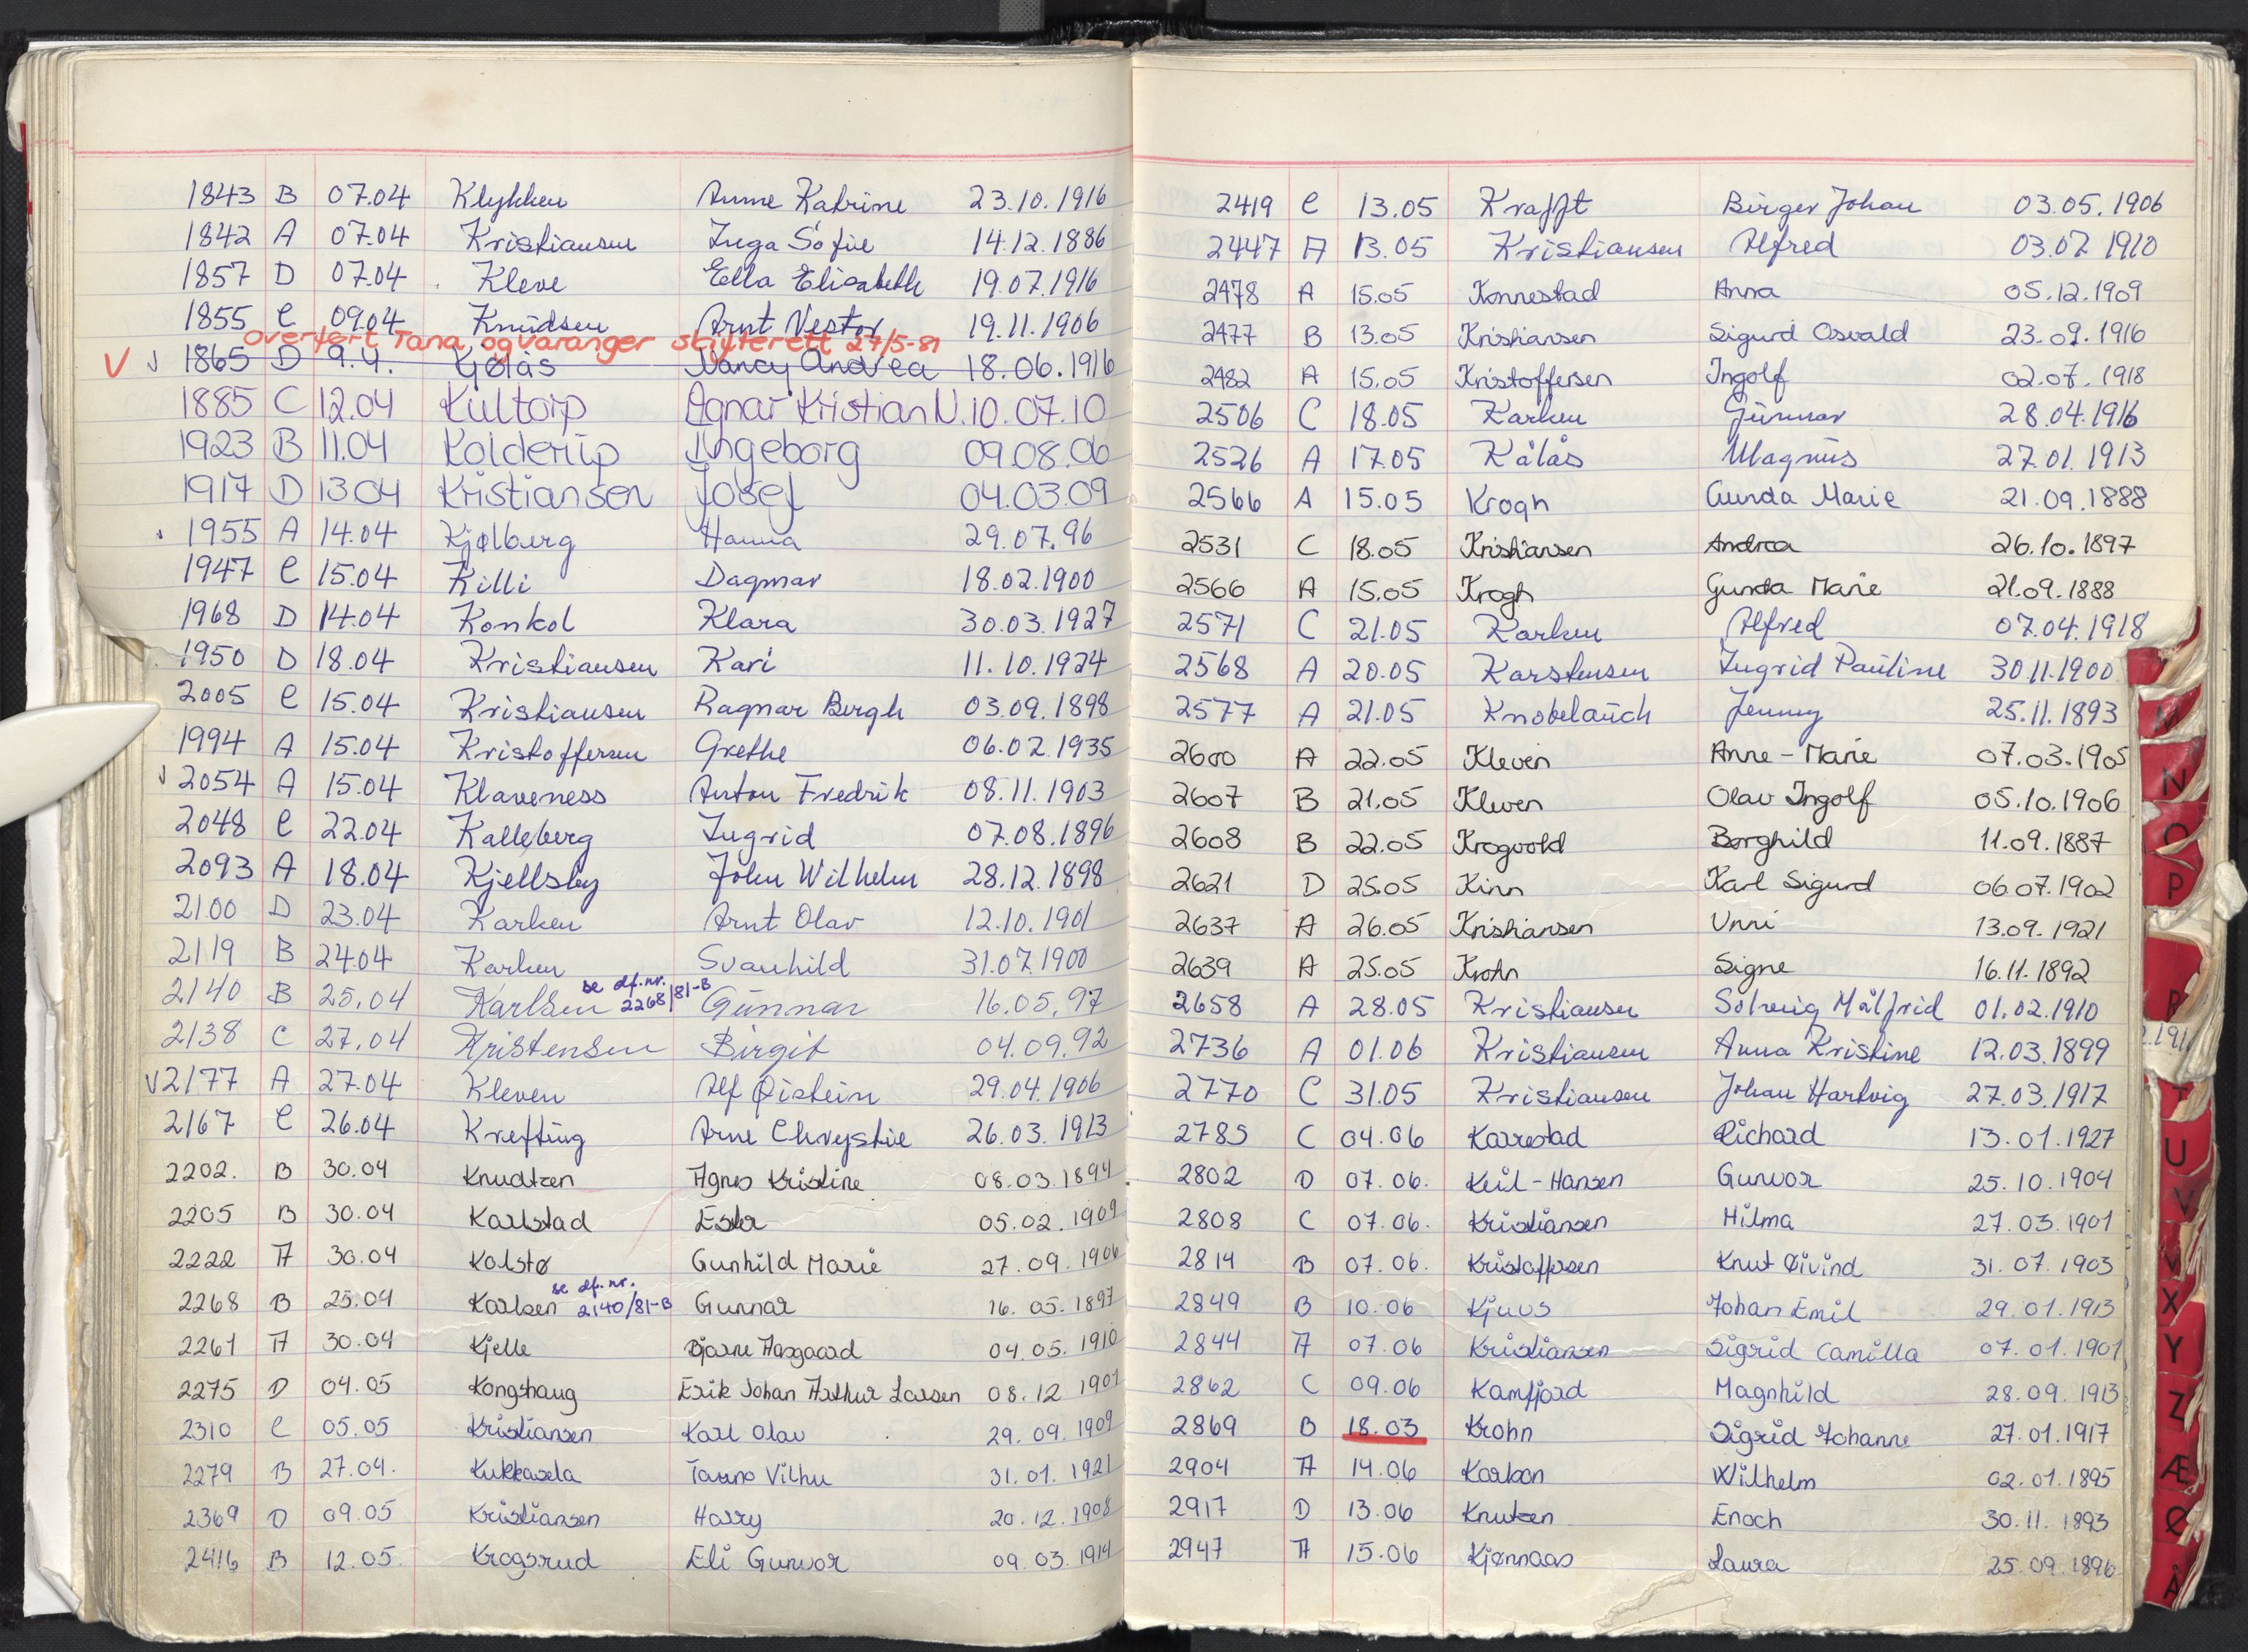 1843 B 07.04 Klykken Anne Katrine 23.10.1916
1842 A 07.04 Kristiansen Inga Sofie 14.12.1886
1857 D 07.04 Kleve Ella Elisabeth 19.07.1916
1855 C 09.04 Knudsen Arnt Nestor 19.11.1906
overført Tana og Varanger skifterett 27/5-81
V √ 1865 D 9.4. Kjølås Nancy Andrea 18.06.1916
1885 C 12.04 Kultorp Agnar Kristian N. 10.07.10
1923 B 11.04 Kolderup Ingeborg 09.08.06
1917 D 13.04 Kristiansen Josef 04.03.09
1955 A 14.04 Kjølberg Hanna 29.07.96
1947 C 15.04 Killi Dagmar 18.02.1900
1968 D 14.04 Konkol Klara 30.03.1927
1950 D 18.04 Kristiansen Kari 11.10.1924
2005 C 15.04 Kristiansen Ragnar Bergh 03.09.1898
1994 A 15.04 Kristoffersen Grethe 06.02.1935
√ 2054 A 15.04 Klaveness Anton Fredrik 08.11.1903
2048 C 22.04 Kalleberg Ingrid 07.08.1896
2093 A 18.04 Kjellsby John Wilhelm 28.12.1898
2100 D 23.04 Karlsen Arnt Olav 12.10.1901
2119 B 24.04 Karlsen Svanhild 31.07.1900
2140 B 25.04 Karlsen se df.nr. 2268/81-B Gunnar 16.05.97
2138 C 27.04 Kristensen Birgit 04.09.92
√ 2177 A 27.04 Kleven Alf Øistein 29.04.1906
2167 C 26.04 Krefting Arne Chrystie 26.03.1913
2202. B 30.04 Knudtzen Agnes Kristine 08.03.1894
2205 B 30.04 Karlstad Ester 05.02.1909
2222 A 30.04 Kolstø Gunhild Marie 27.09.1906
2268 B 25.04 Karlsen se df.nr. 2140/81-B Gunnar 16.05.1897
2261 A 30.04 Kjelle Bjarne Aasgaard 04.05.1910
2275 D 04.05 Kongshaug Erik Johan Arthur Larsen 08.12 1901
2310 C 05.05 Kristiansen Karl Olav 29.09.1909
2279 B 27.04. Kukkasela Tarmo Vilhu 31.01.1921
2369 D 09.05 Kristiansen Harry 20.12.1908
2416 B 12.05 Krogsrud Eli Gunvor 09.03.1914
2419 C 13.05 Krafft Birger Johan 03.05.1906
2447 A 13.05 Kristiansen Alfred 03.02 1910
2478 A 15.05 Konnestad Anna 05.12.1909
2477 B 13.05 Kristiansen Sigurd Osvald 23.09.1916
2482 A 15.05 Kristoffersen Ingolf 02.07.1918
2506 C 18.05 Karlsen Gunnar 28.04.1916
2526 A 17.05 Kålås Magnus 27.01.1913
2566 A 15.05 Krogh Gunda Marie 21.09.1888
2531 C 18.05 Kristiansen Andrea 26.10.1897
2566 A 15.05 Krogh Gunda Marie 21.09.1888
2571 C 21.05 Karlsen Alfred 07.04.1918
2568 A 20.05 Karstensen Ingrid Pauline 30.11.1900
2577 A 21.05 Knobelauch Jenny 25.11.1893
2600 A 22.05 Kleven Anne-Marie 07.03.1905
2607 B 21.05 Kleven Olav Ingolf 05.10.1906
2608 B 22.05 Krogvold Borghild 11.09.1887
2621 D 25.05 Kinn Karl Sigurd 06.07.1902
2637 A 26.05 Kristiansen Unni 13.09.1921
2639 A 25.05 Krohn Signe 16.11.1892
2658 A 28.05 Kristiansen Solveig Målfrid 01.02.1910
2736 A 01.06 Kristiansen Anna Kristine 12.03.1899
2770 C 31.05 Kristiansen Johan Hartvig 27.03.1917
2785 C 04.06 Karrestad Richard 13.01.1927
2802 D 07.06. Keil-Hansen Gunvor 25.10.1904
2808 C 07.06. Kristiansen Hilma 27.03.1901
2814 B 07.06. Kristoffersen Knut Øivind 31.07.1903
2849 B 10.06 Kjuus Johan Emil 29.01.1913
2844 A 07.06 Kristiansen Sigrid Camilla 07.01.1901
2862 C 09.06 Kamfjord Magnhild 28.09.1913
2869 B 18.03 Krohn Sigrid Johanne 27.01.1917
2904 A 14.06 Karlsen Wilhelm 02.01.1895
2917 D 13.06 Knutzen Enoch 30.11.1893
2947 A 15.06 Kjønnaas Laura 25.09.1896
M
N
O
P
R
T
U
V
X
Y
Z
Æ
Ø
Å